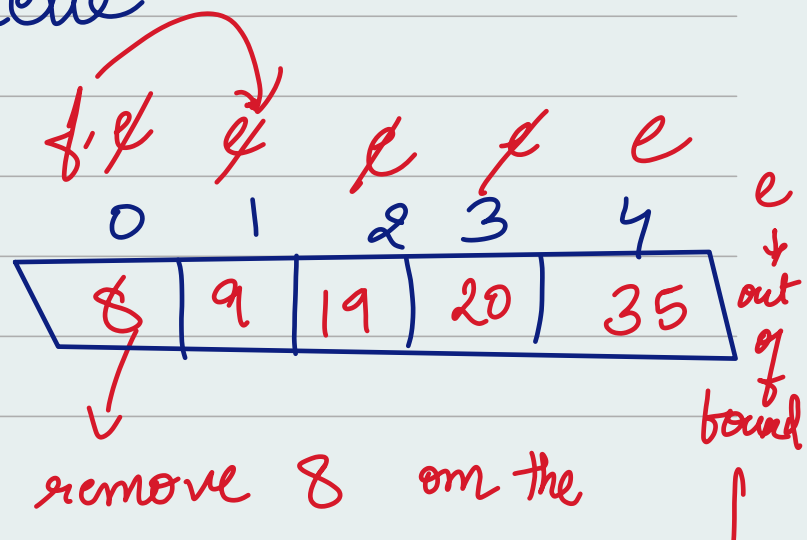 f, e e e e e
0 1 2 3 4
8 9 19 20 35
e
out
of
bound
remove 8 om the